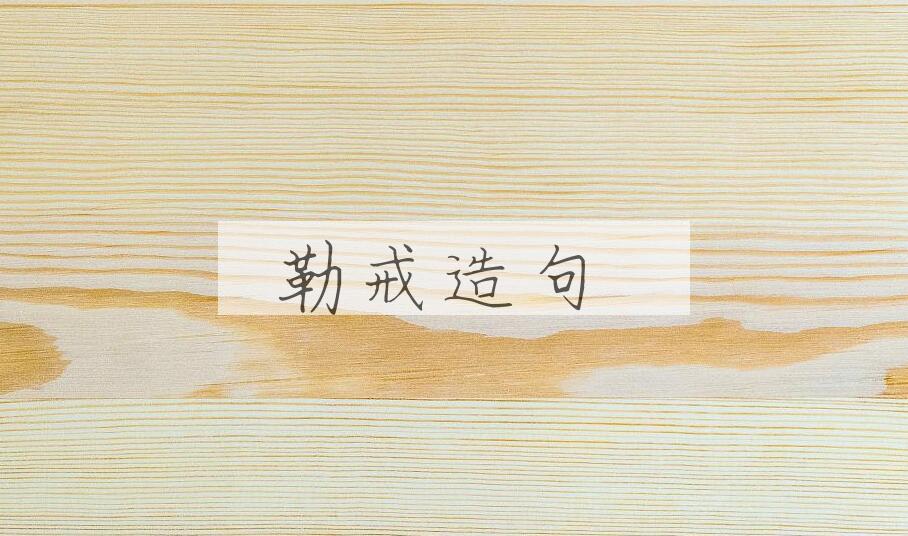 勒戒造句